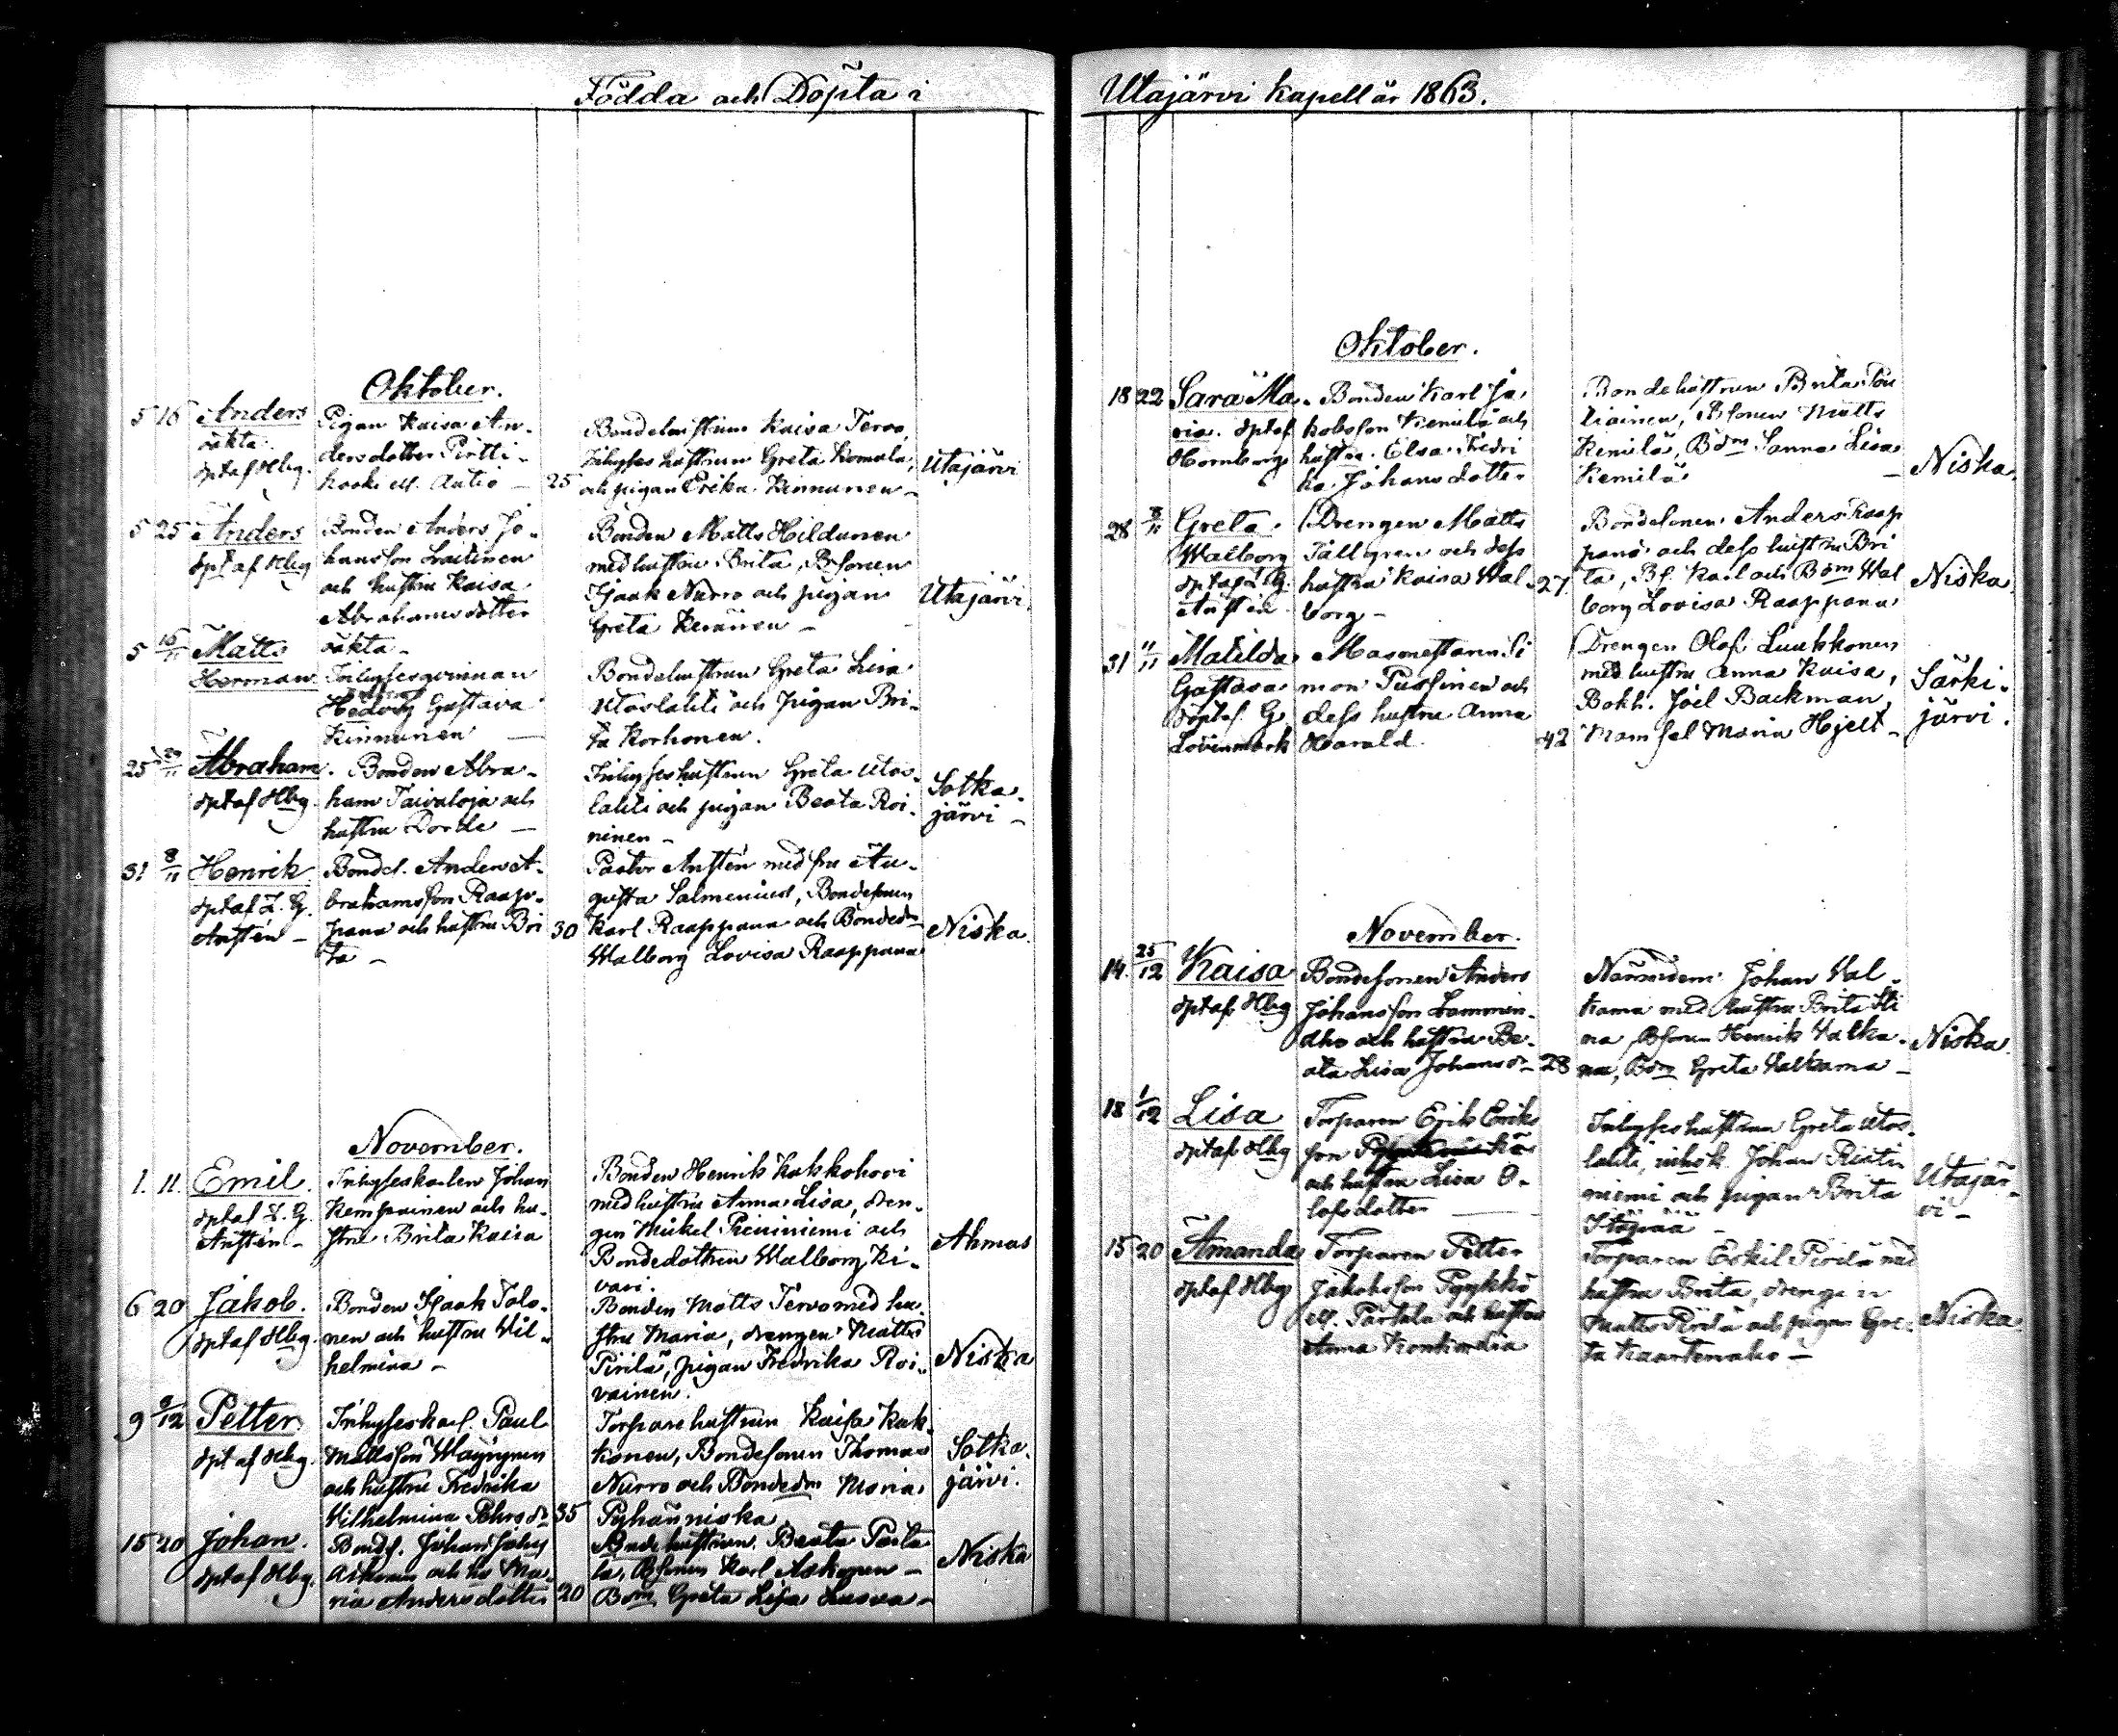 Födda och Döpta i
Oktober.
5 16 Anders
oäkta.
dpt af Hbg.
Pigan Kaisa An-
dersdotter Pirtti-
koski ell. Autio —
25
Bondehustrun Kaisa Tervo,
Inhyses hustrun Greta Komula,
och pigan Erika Kinnunen —
Utajärvi
5 25 Anders
dpt af Hbg
Bonden Anders Jo-
hansson Laitinen
och hustru Kaisa
Abrahamsdotter
Bonden Matts Hildunen
med hustru Brita, Bsonen
Isaak Nurro och pigan
Greta Keränen —
Utajärvi.
5 15/11 Matts
Herman
oäkta —
Inhysesqvinnan
Hedvig Gustava
Kinnunen —
Bondehustrun Greta Lisa
Utoslahti och pigan Bri-
ta Korhonen.
25 29/11 Abraham.
dpt af Hbg.
Bonden Abra-
ham Taivaloja och
hustru Lorde —
Inhyseshustrun Greta Utos-
lahti och pigan Beata Roi-
ninen —
Sotka-
järvi —
31 8/11 Henrik
dpt af L. G.
Anstén —
Bondes. Anders A-
brahamsson Raap-
pana och hustru Bri
ta —
30
Pastor Anstén med fru Au-
gusta Salmenius, Bondesonen
Karl Raappana och Bondedn
Walborg Lovisa Raappana
Niska.
November.
1. 11. Emil.
dpt af L. G.
Anstén —
Inhyseskarlen Johan
Kemppainen och hu-
stru Brita Kaisa
Bonden Henrik Kukkohovi
med hustru Anna Lisa, dren-
gen Mikel Pieniniemi och
Bondedottren Walborg Ki-
vari.
Ahmas
6 20 Jakob.
dpt af Hbg.
Bonden Isaak Tolo-
nen och hustru Wil-
helmina —
Bonden Matts Tervo med hu-
stru Maria, drengen Matts
Pirilä, pigan Fredrika Roi-
vainen.
Niska
9 9/12 Petter
dpt af Hbg.
Inhyseskarl. Paul
Mattsson Wäyrynen
och hustru Fredrika
Vilhelmina Pehrsdr
35
Torpare hustrun Kaisa Kuk-
konen, Bondesonen Thomas
Nurro och Bondedn Maria
Pyhänniska
Sotka-
järvi.
15 20 Johan.
dpt af Hbg.
Bonds. Johan Johs
Askonen och hu Ma-
ria Andersdotter
20
Bondehustrun Beata Parta
la, Bsonen Karl Askonen —
Bdm Greta Lisa Lusva —
Niska
Utajärvi Kapell år 1863.
Oktober.
18 22 Sara Ma-
ria. dpt af
Hornborg
Bonden Karl Ja-
kobsson Kemilä och
hustru Elsa Fredri
ka Johansdotter
Bondehustrun Brita Tou
liainen, Bsonen Matts
Kemilä, Bdm Sanna Lisa
Kemilä —
Niska.
28 8/11 Greta
Walborg
dpt af L. G.
Anstén
Drengen Matts
Tällgren och dess
hustru Kaisa Wal-
borg —
27.
Bondesonen Anders Raap
pana och dess hustru Bri
ta, Bs. Karl och Bdm Wal
borg Lovisa Raappana
Niska
31 11/11 Matilda
Gustava
dpt af G.
Lövenmark
Masmestaren Si
mon Pussinen och
dess hustru Anna
Harald.
42
Drengen Olof Luukkonen
med hustru Anna Kaisa,
Bokh. Joel Backman,
Mamsel Maria Hjelt —
Särki-
järvi.
November.
14. 25/12 Kaisa
dpt af Hbg
Bondesonen Anders
Johansson Lammin-
aho och hustru Be-
ata Lisa Johansd —
28
Nämndem. Johan Val-
kama med hustru Brita Sti
na, Bsonen Henrik Valka-
ma, Bdm Greta Valkama —
Niska.
18 1/12 Lisa
dpt af Hbg
Torparen Erik Eriks
son
och hustru Lisa O-
lofsdotter —
Inhyseshustrun Greta Utos-
lahti, inhysk. Johan Ristin
niemi och pigan Brita
Utajär-
vi —
15 20 Amanda
dpt af Hbg
Torparen Petter
Jakobsson Pyykkö
ell. Partala och hustru
Anna Konkordia
Torparen Eskil Pirilä med
hustru Brita, drengen
Matts Pirilä och pigan Gre-
ta Kaartenaho —
Niska.